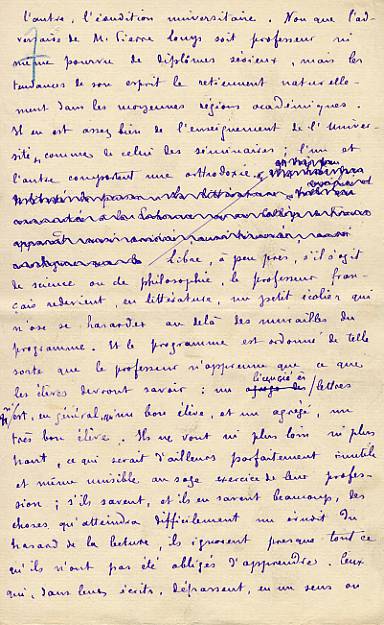 l'autre, l'érudition universitaire. Non que l'ad-
versaire de M. Pierre Louys soit professeur ni
même pourvu de diplômes sérieux, mais les
tendances de son esprit le retiennent naturelle-
ment dans les moyennes régions académiques.
Il en est assez bien de l'enseignement de l'Univer-
sité, comme de celui des séminaires ; l'un et
l'autre comportent une orthodoxie
Libre, à peu près, s'il s'agit
de science ou de philosophie, le professeur fran-
çais redevient, en littérature, un petit écolier qui
n'ose se hasarder au delà des murailles du
programme. Et le programme est ordonné de telle
sorte que le professeur n'apprenne que ce que
les élèves devront savoir : un licencié ès lettres
n'est, en général, qu'un bon élève, et un agrégé, un
très bon élève. Ils ne vont ni plus loin ni plus
haut, ce qui serait d'ailleurs parfaitement inutile
et même nuisible au sage exercice de leur profes-
sion ; s'ils savent, et ils en savent beaucoup, des
choses qu'atteindra difficilement un érudit du
hasard de la lecture, ils ignorent presque tout ce
qu'ils n'ont pas été obligés d'apprendre. Ceux
qui, dans leurs écrits, dépassent, en un sens ou